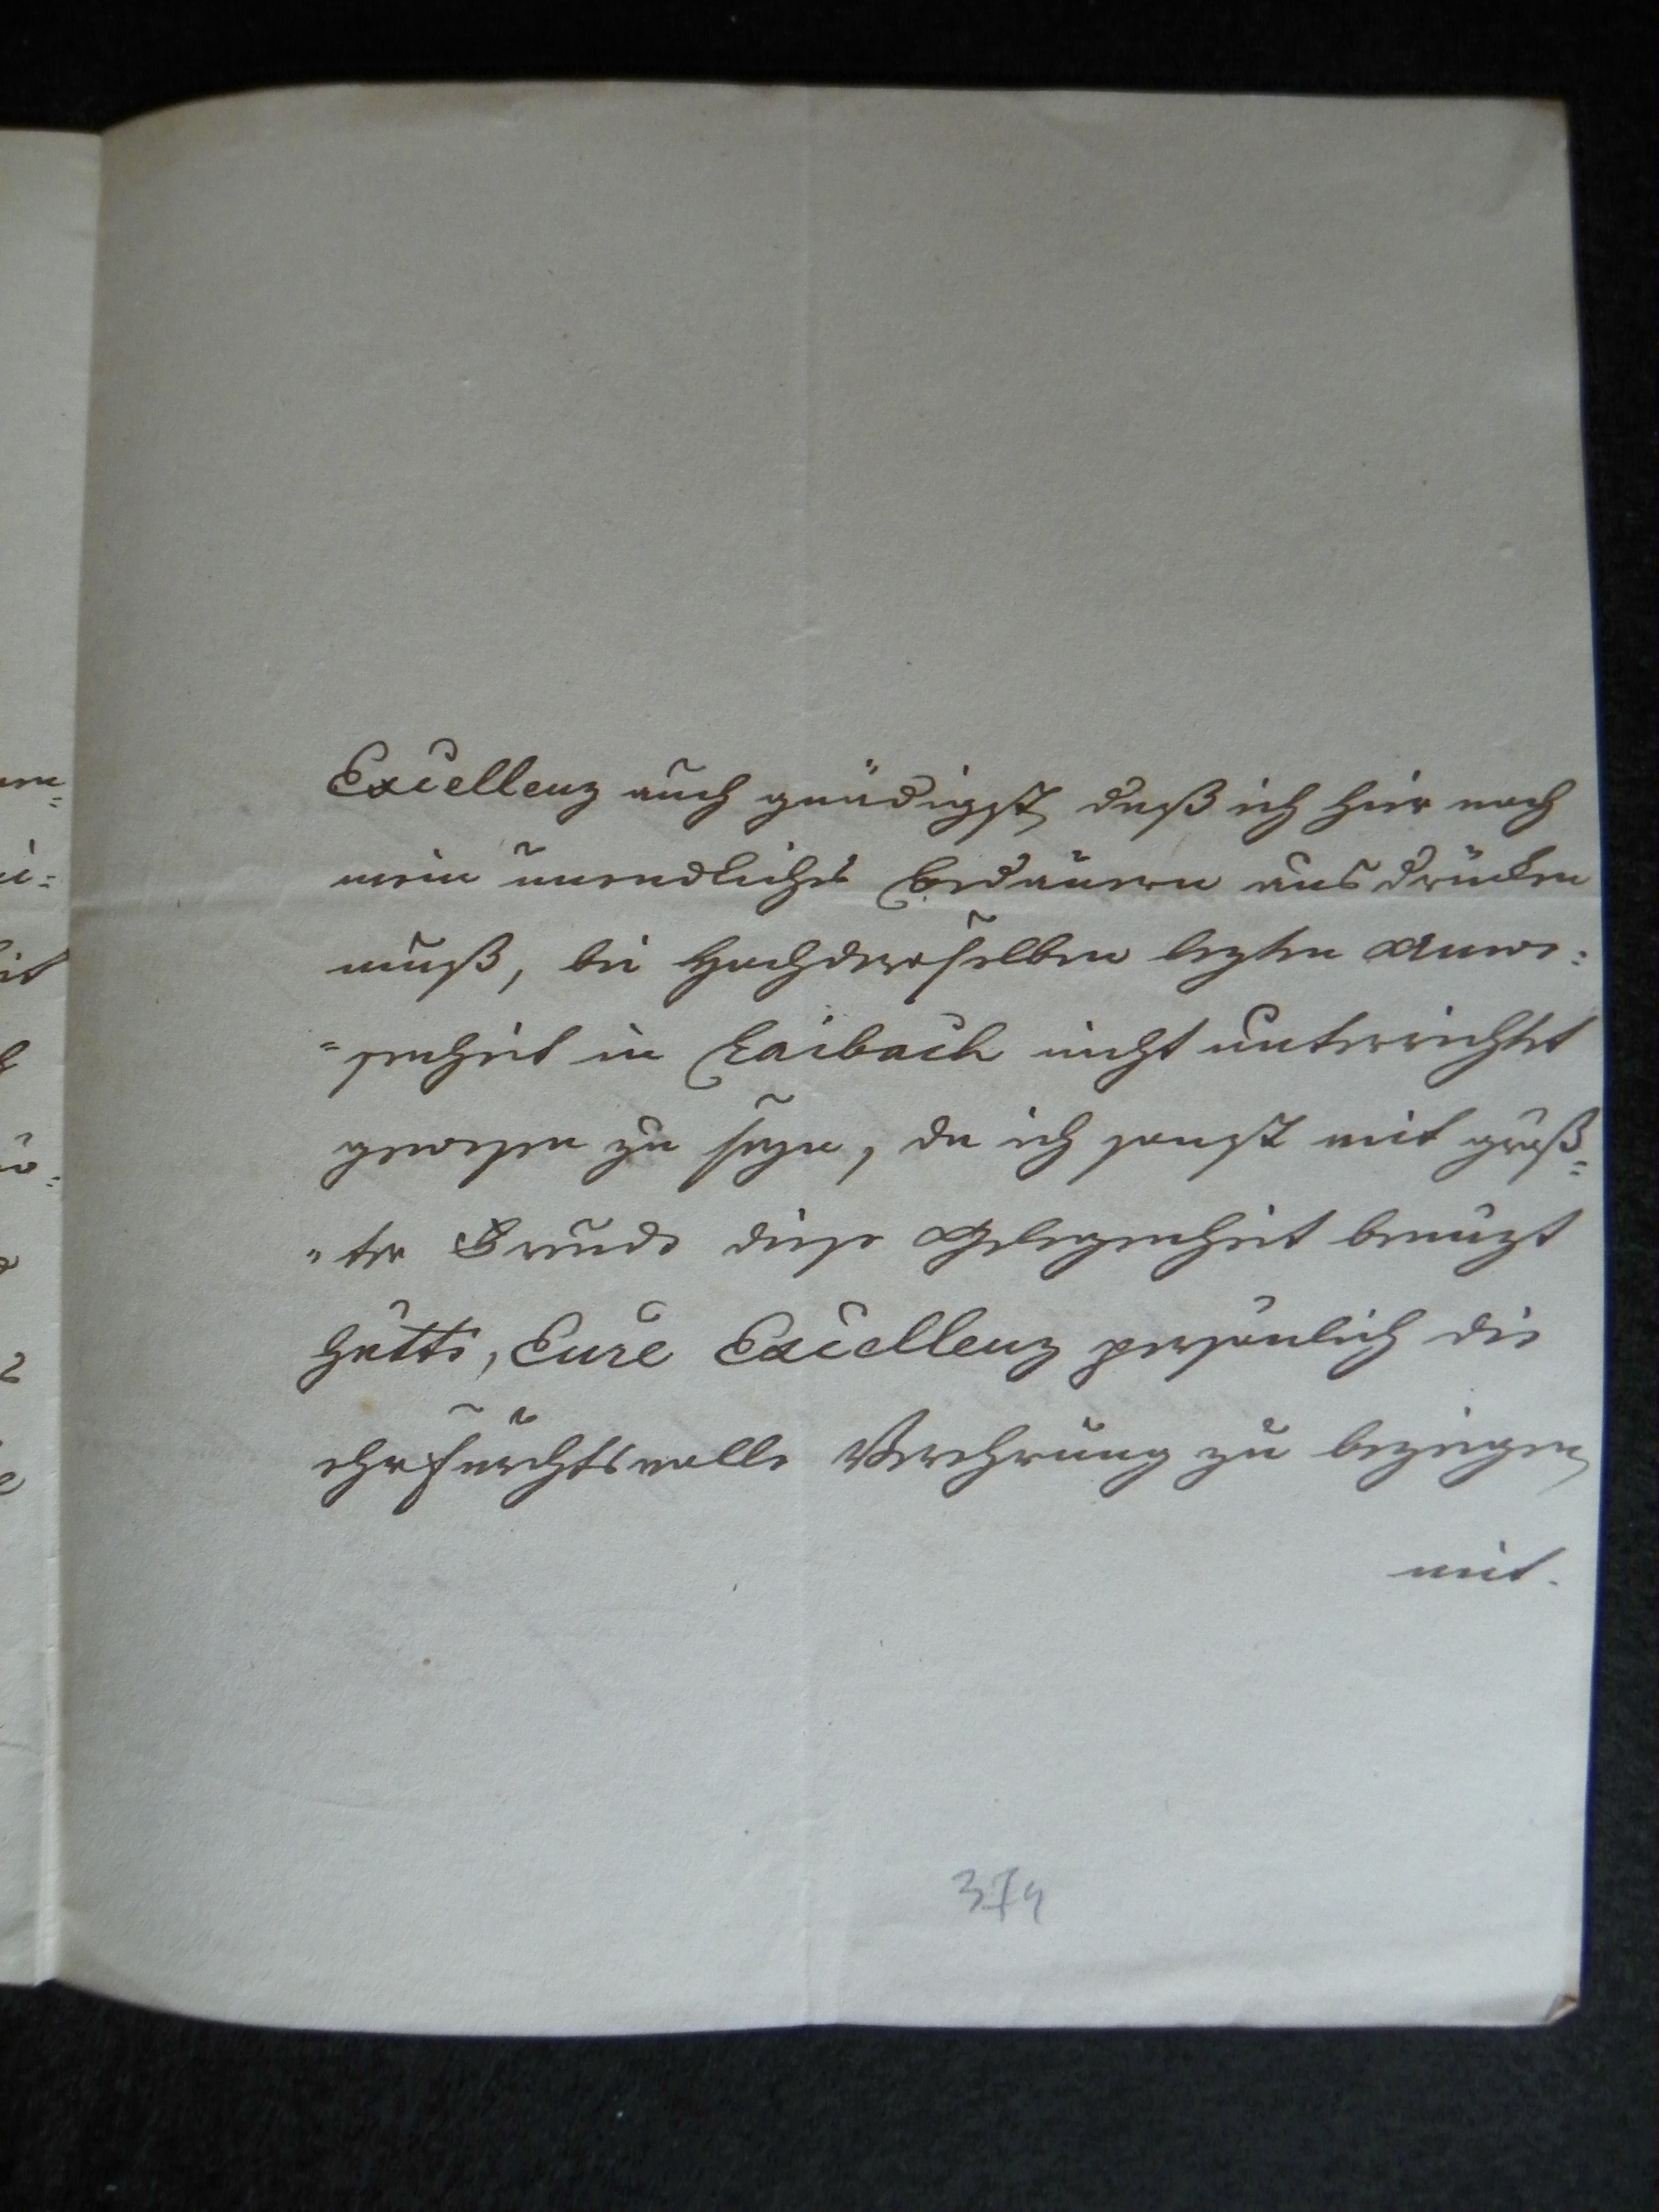 Excellenz auch gnädigst, daß ich hier noch
mein unendliches Bedauern ausdrücken
muß, bei Hochderoselben lezten Anwe=
=senheit in Laibach nicht unterrichtet
gewesen zu seyn, da ich sonst mit größ=
"ter Freude diese Gelegenheit benüzt
hätte, Eure Excellenz persönlich die
ehrfurchtsvolle Verehrung zu bezeigen,
mit.
374